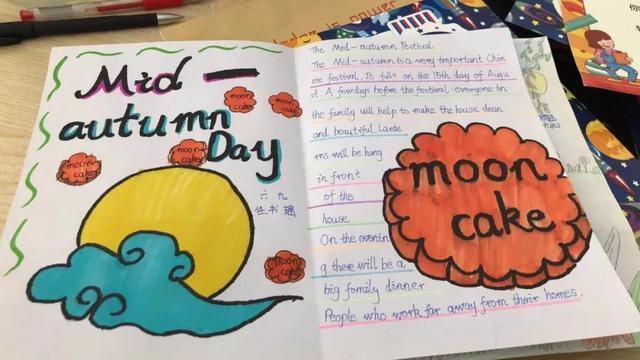 Mid —
autumn
Day
moon
cake
moon
cake
moon
cake
moon
cake
moon
cake
六 九
任书瑶
The Mid-autumn Festival
The Mid-autumn is a very important Chin
ese festival. It falls on the 15th day of Augu
st. A few days before the festival. everyone in
the family will help to make the house clean
and beautiful Lante
rns will be hung
in front
of the
house
On the evenin
g there will be a
big family dinner
People who work far away from their homes.
moon
cake